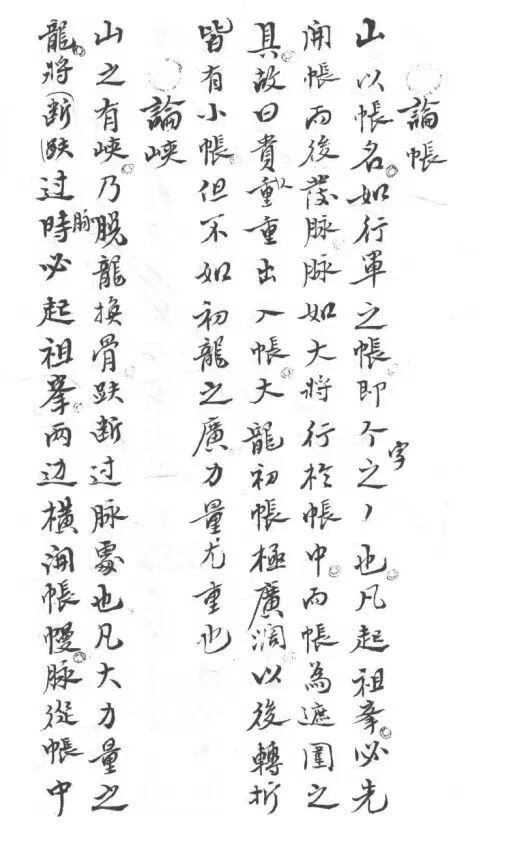 論帳
山以帳名如行軍之帳即个字之丿也凡起祖峯必先
開帳而後發脉脉如大將行於帳中而帳為遮圍之
具故曰貴重重出入帳大龍初帳極廣濶以後轉折
皆有小帳但不如初龍之廣力量尤重也
論峽
山之有峽乃脫龍換骨跌斷过脉處也凡大力量之
龍將断跌过脉時必起祖峯两边橫開帳幔脉從帳中